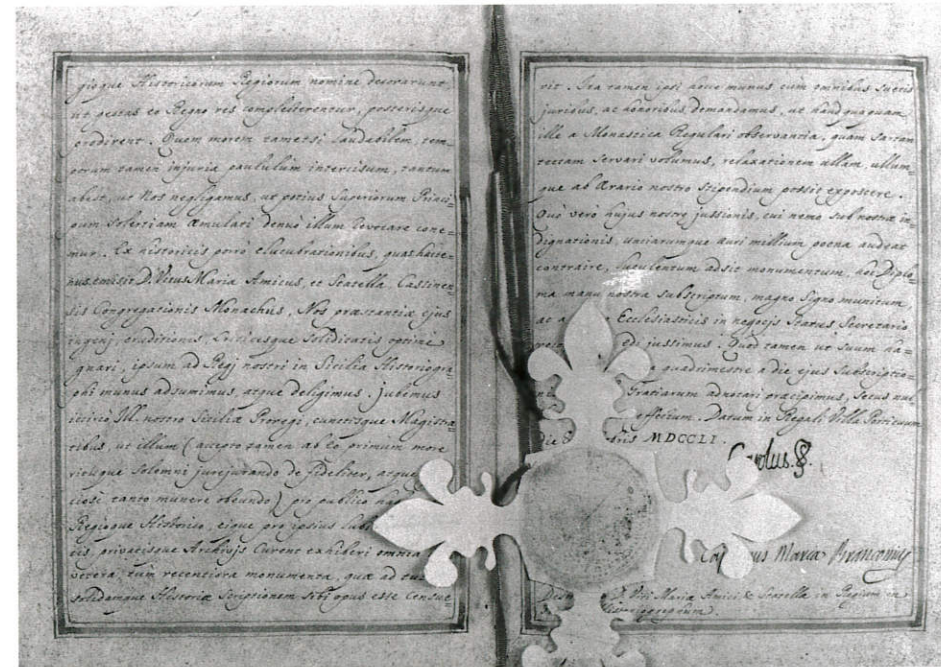 gioque Historicorum Regiorum nomine decorarunt
ut gestas eo Regno res complecterentur, posterisque
prodirent. Quem morem tametsi laudabilem, tem=
porum tamen injuria paululum intercisum, tantum
abest, ut Nos negligamus, ut potius Superiorum Princi=
pum Solertiam Æmulari denuò illum revocare cone=
mur. Ex historicis porrò elucubrationibus, quas hacte=
nus emisit D. Vitus Maria Amicus, et Statella Cassinen=
sis Congregationis Monachus, Nos præstantiæ ejus
ingenj, eruditionis, Criticesque Soliditatis optime
gnari, ipsum ad Regj nostri in Sicilia Historiogra=
phi munus adsumimus atque deligimus. Jubemus
itcirco Ill. nostro Siciliæ Proregi, cunctisque Magistra
tibus, ut illum (accepto tamen ab eo primum more
rituque Solemni jurejurando de fideliter, atque
tanto munere obeundo) pro publico
Regioque Historico, eique pro ipsius
privatisque Archivjs Curent exhiberi omnia
vetera, tum recentiora monumenta, quæ ad
solidamque Historiæ Scriptionem sibi opus esse Censue
rit. Ita tamen ipsi novo munus cum omnibus suetis
juribus, ac honoribus demandamus, ut haudquaquam
ille a Monastica Regulari observantia, quam Sartam
tectam Servari volumus, relaxationem ullam, ullum
que ab Ærario nostro Stipendium possit exposcere.
Quò verò hujus nostræ jussionis, cui nemo sub nostræ in
dignationis, unciarumque auri millium poena audeat
contraire, luculentum adsit monumentum, hoc Diplo
ma manu nostra subscriptum, magno Signo munitum
ac a Ecclesiasticis in negocjs Status Secretario
jussimus. Quod tamen ut suum ha=
quadrimestre a die ejus Subscriptio
Gratiarum adnotari præcipimus, secus nul
effectum. Datum in Regali Villa Porticuum
die MDCCLI.
Carolus.
Maria Brancomus
D. Viti Mariæ Amici & Statella in Regium in